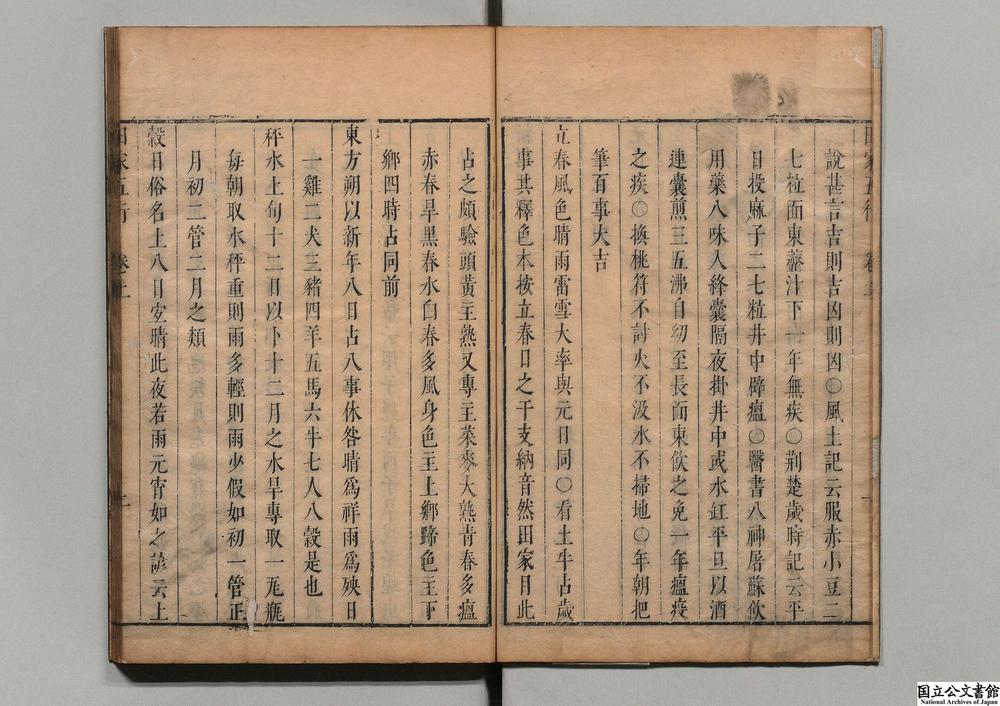 說甚言吉則吉凶則凶○風土記云服赤小豆二
七粒面東虀汁下一年無疾○荆楚歲時記云平
旦投麻子二七粒井中辟瘟○醫書八神屠蘇飲
用藥八味入絳囊隔夜掛井中或水缸平旦以酒
連囊煎三五沸自幼至長面東飲之免一年瘟疫
之疾○換桃符不討火不汲水不掃地○年朝把
筆百事大吉
立春風色晴雨雷雪大率與元日同○看土牛占歲
事其釋色本按立春日之干支納音然田家目此
占之頗驗頭黃主熟又專主菜麥大熟青春多瘟
赤春旱黑春水白春多風身色主上鄉蹄色主下
鄉四時占同前
東方朔以新年八日占八事休咎晴爲祥雨爲殃日
一雞二犬三豬四羊五馬六牛七人八穀是也
秤水上旬十二日以卜十二月之水旱專取一瓦瓶
每朝取水秤重則雨多輕則雨少假如初一管正
月初二管二月之類
穀日俗名上八日宜晴此夜若雨元宵如之諺云上
田家五行 卷上
国立公文書館
National Archives of Japan